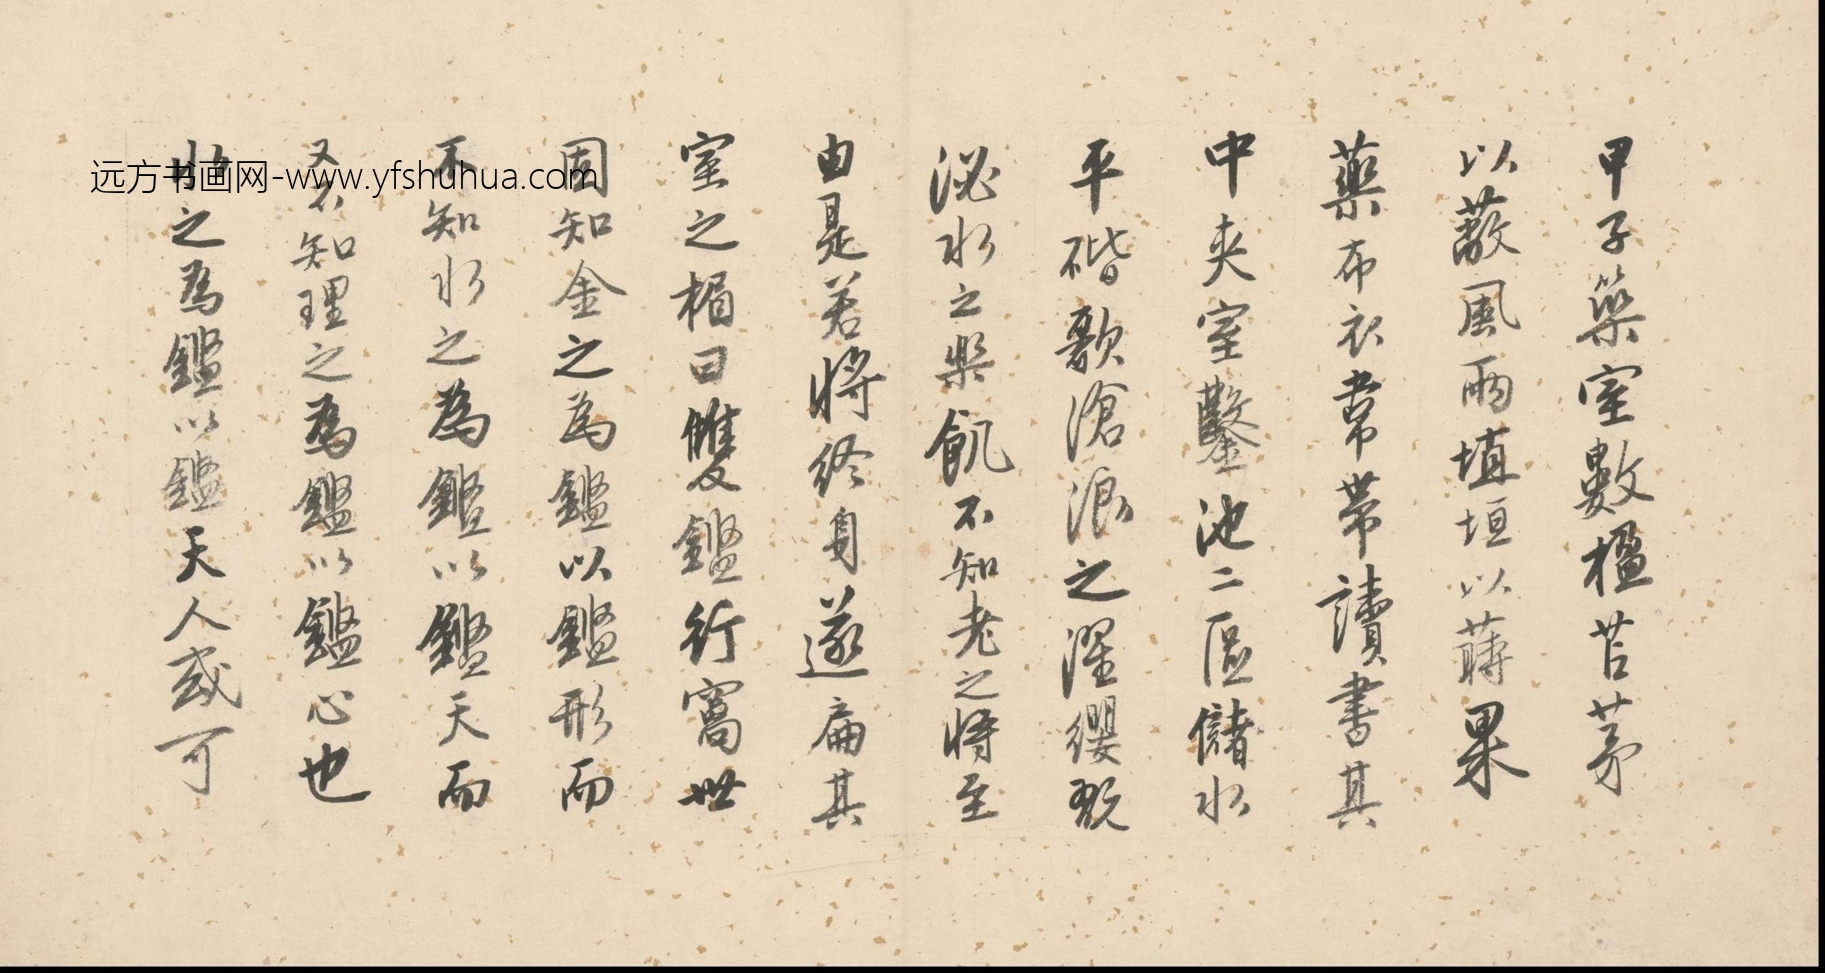 甲子築室數楹苫茅
以蔽風雨墻垣以蒔果
藥布衣韋帶讀書其
中夾室鑿池二區儲水
平碿歌滄浪之濯纓翫
泌水之樂飢不知老之將至
由是若將終身遂扁其
室之楣曰雙鑑行窩世
固知金之為鑑以鑑形而
不知水之為鑑以鑑天而
又不知理之為鑑以鑑心也
心之為鑑以鑑天人或可
远方书画网-www.yfshuhua.com